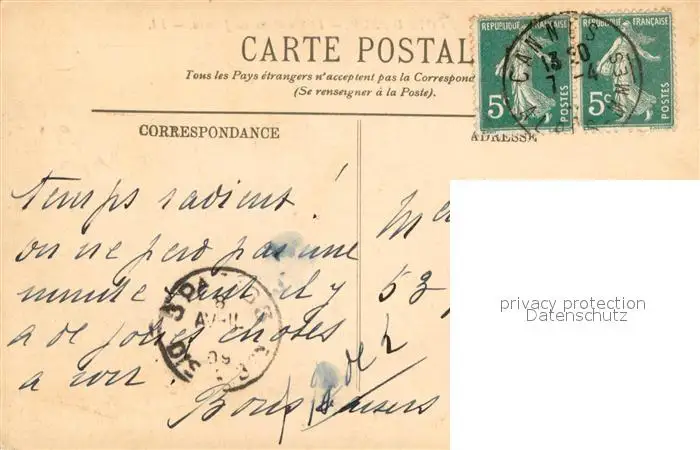 CARTE POSTAL
Tous les Pays étrangers n'acceptent pas la Correspond
(Se renseigner à la Poste).
CORRESPONDANCE
ADRESSE
REPUBLIQUE FRANÇAISE
5c
POSTES
REPUBLIQUE FRANÇAISE
5c
POSTES
CANNES
13 20
7 -4
temps radieux !
on ne perd pas une
minute tant il y
a de jolies choses
a voir.
Bons baisers
de
53
PARIS
8
AVRIL
09
privacy protection
Datenschutz